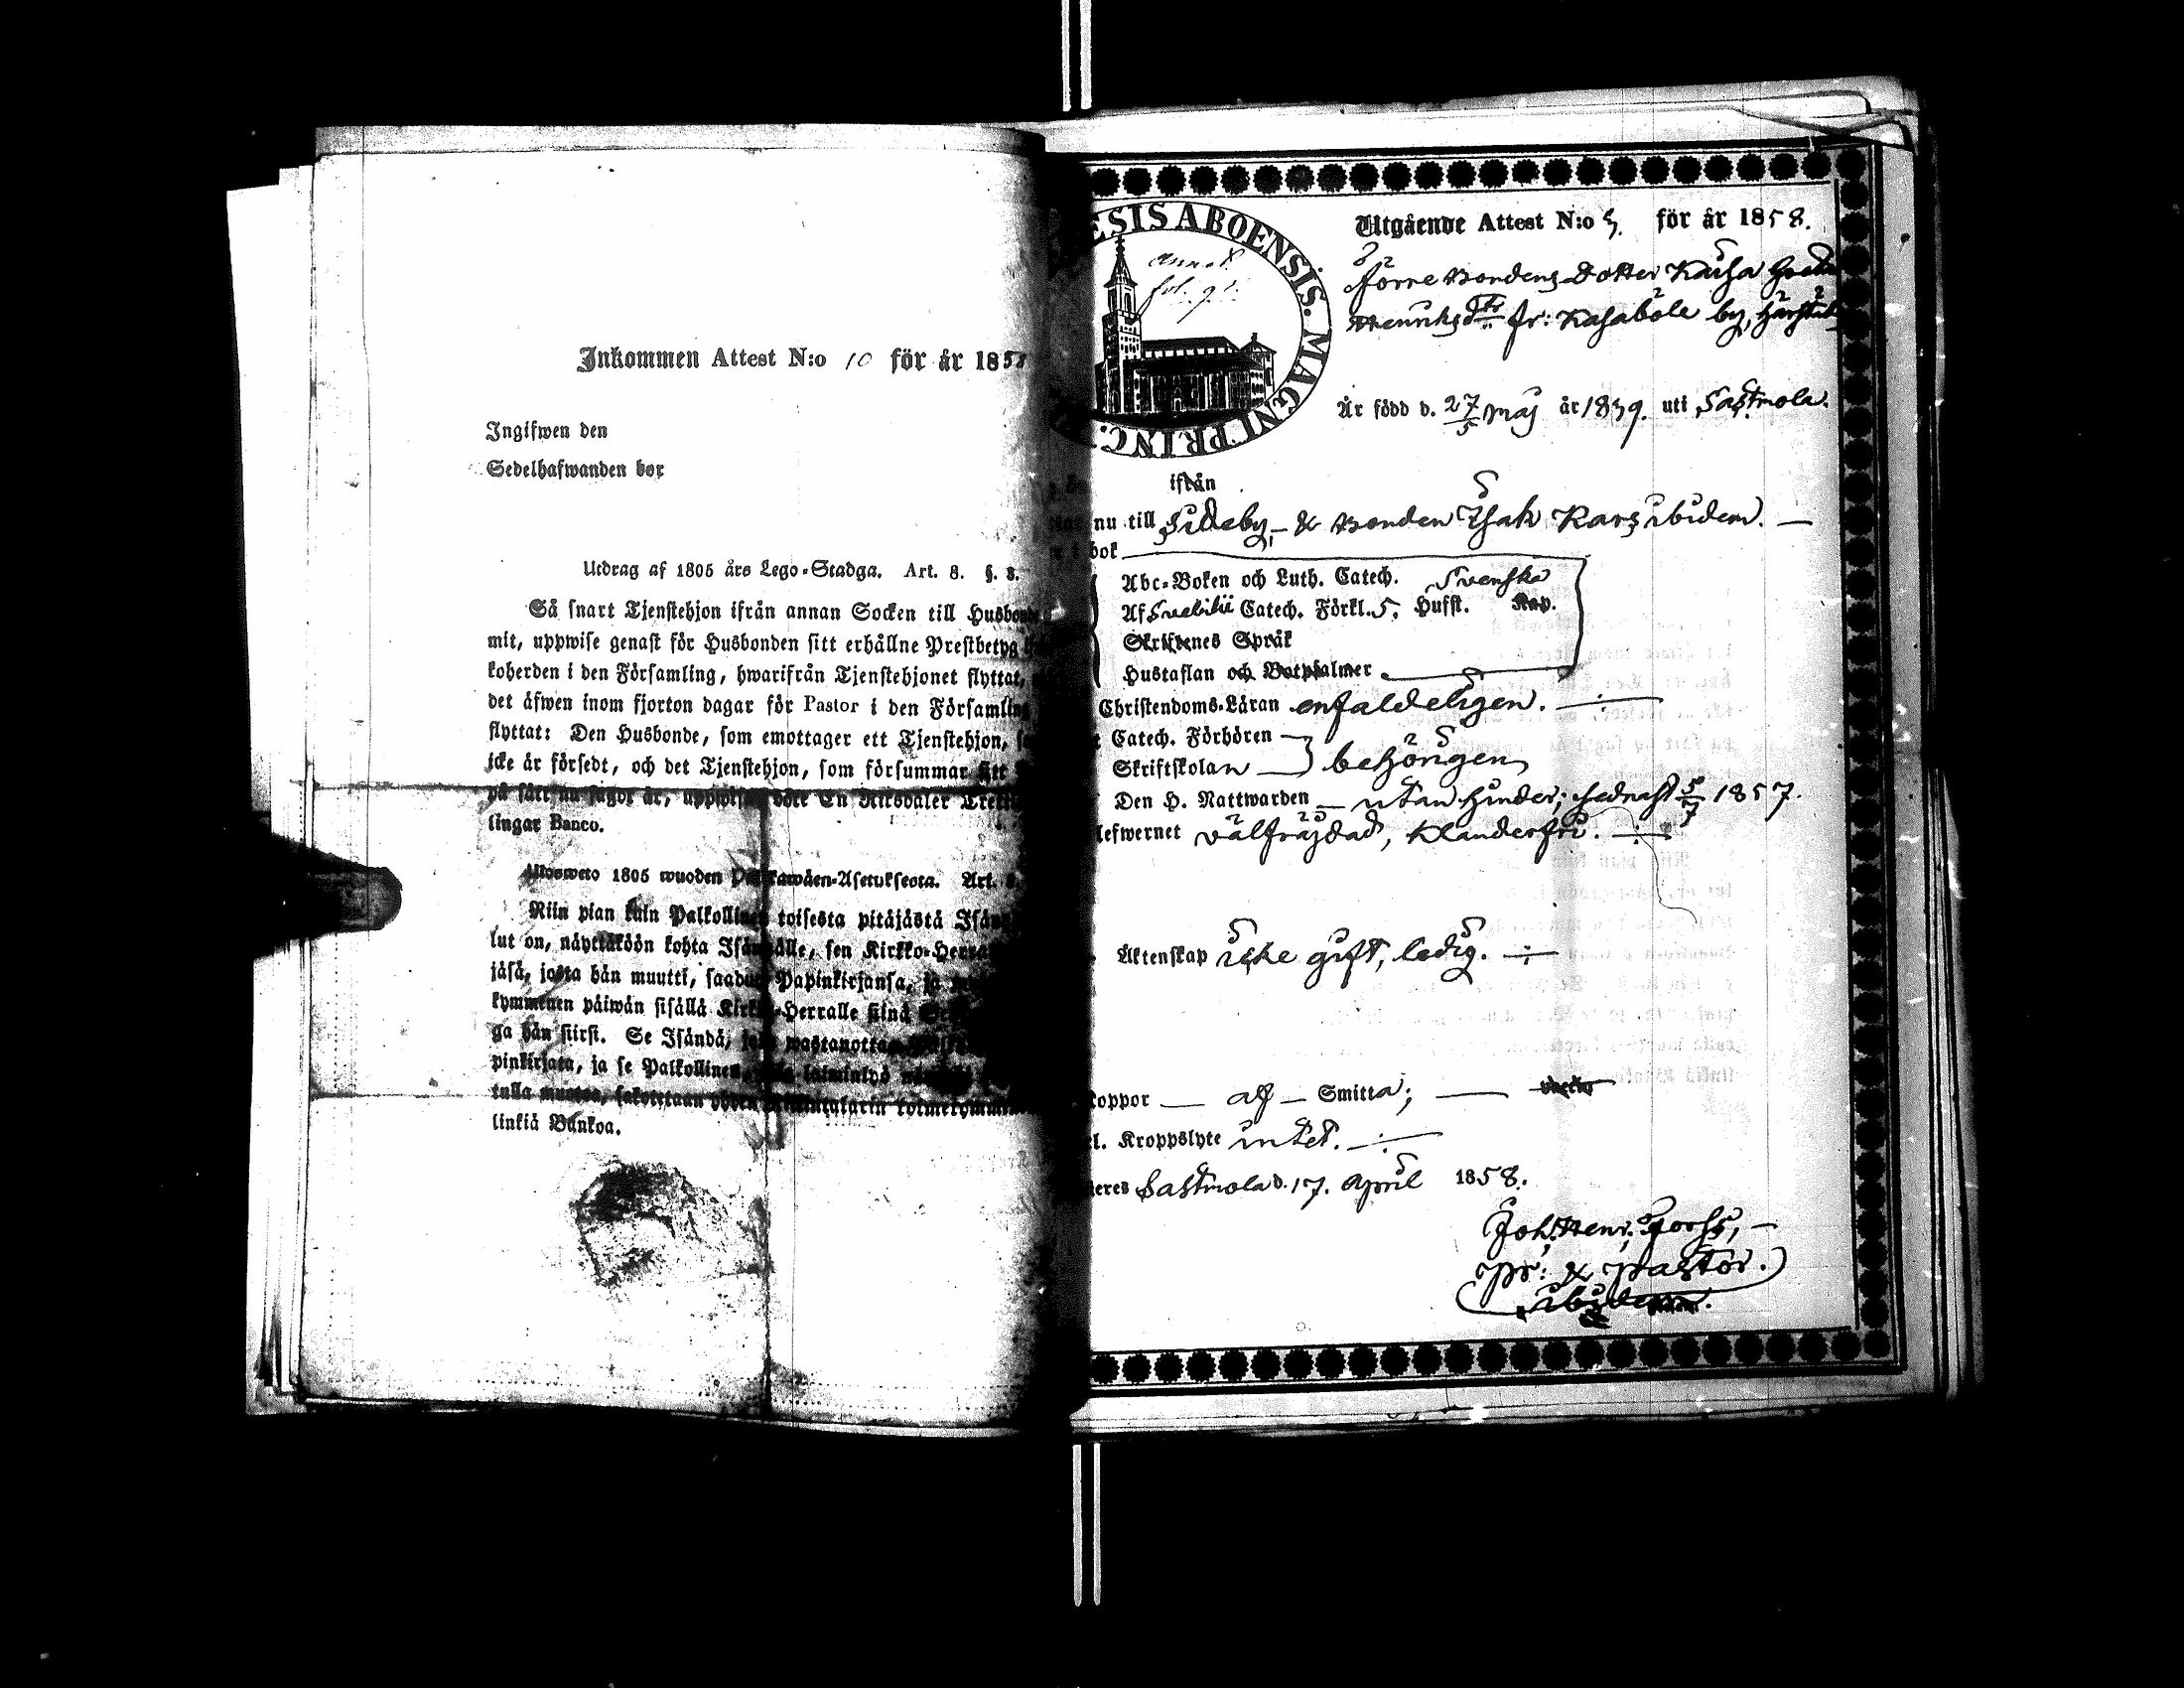 Inkommen Attest N:o 10 för år 1858
Ingifwen den
Sedelhafwanden bor
Utdrag af 1805 års Lego-Stadga. Art. 8. §. 8.
Så snart Tjenstehjon ifrån annan Socken till Husbonde
mit, uppwise genast för Husbonden sitt erhållne Prestbetyg
koherden i den Församling, hwarifrån Tjenstehjonet flyttat,
det äfwen inom fjorton dagar för Pastor i den Församling
flyttat: Den Husbonde, som emottager ett Tjenstehjon,
icke är försedt, och det Tjenstehjon, som försummar sitt
på sätt nu sagdt är, uppwisa, böte En Riksdaler Trettio
lingar Banco.
Ulosweto 1805 wuoden Palkkawäen-Asetuksesta. Art. 8.
Niin pian kuin Palkollinen toisesta pitäjästä Isän
lut on, näyttäköön kohta Isännälle, sen Kirkko-Herra
jäsä, josta hän muutti, saadun Papinkirjansa, ja
kymmenen päiwän sisällä Kirkko-Herralle siinä
ga hän siirsi. Se Isändä, joka wastanottaa
pinkirjata, ja se Palkollinen,
tulla muotoa, sakotetaan yhden
linkiä Bankoa.
ESIS ABOENSIS. MAGNI PRINC.
annot.
Utgående Attest N:o 5. för år 1858.
Förre Bondens Dotter Kaisa Greta
Henriksdtr fr: Kasaböle by,
Är född d. 27/5 Maj år 1839. uti Sastmola.
ifrån
nu till Sideby, & Bonden Isak Kars ibidem.
bok
Abc-Boken och Luth. Catech. Svenska
Af Svebilii Catech. Förkl. 5. Hufst. Kap.
Skriftenes Språk
Hustaflan och Botpsalmer
Christendoms-Läran enfaldeligen.
Catech. Förhören
Skriftskolan behörigen
Den H. Nattwarden utan hinder; sednast 5/7 1857.
lefwernet välfräjdad, klanderfri.
Äktenskap icke gift, ledig.
koppor af Smitta;
l. Kroppslyte intet.
eres Sastmola d. 17. April 1858.
Joh. Henr.
Pr: & Pastor.
ibidem.